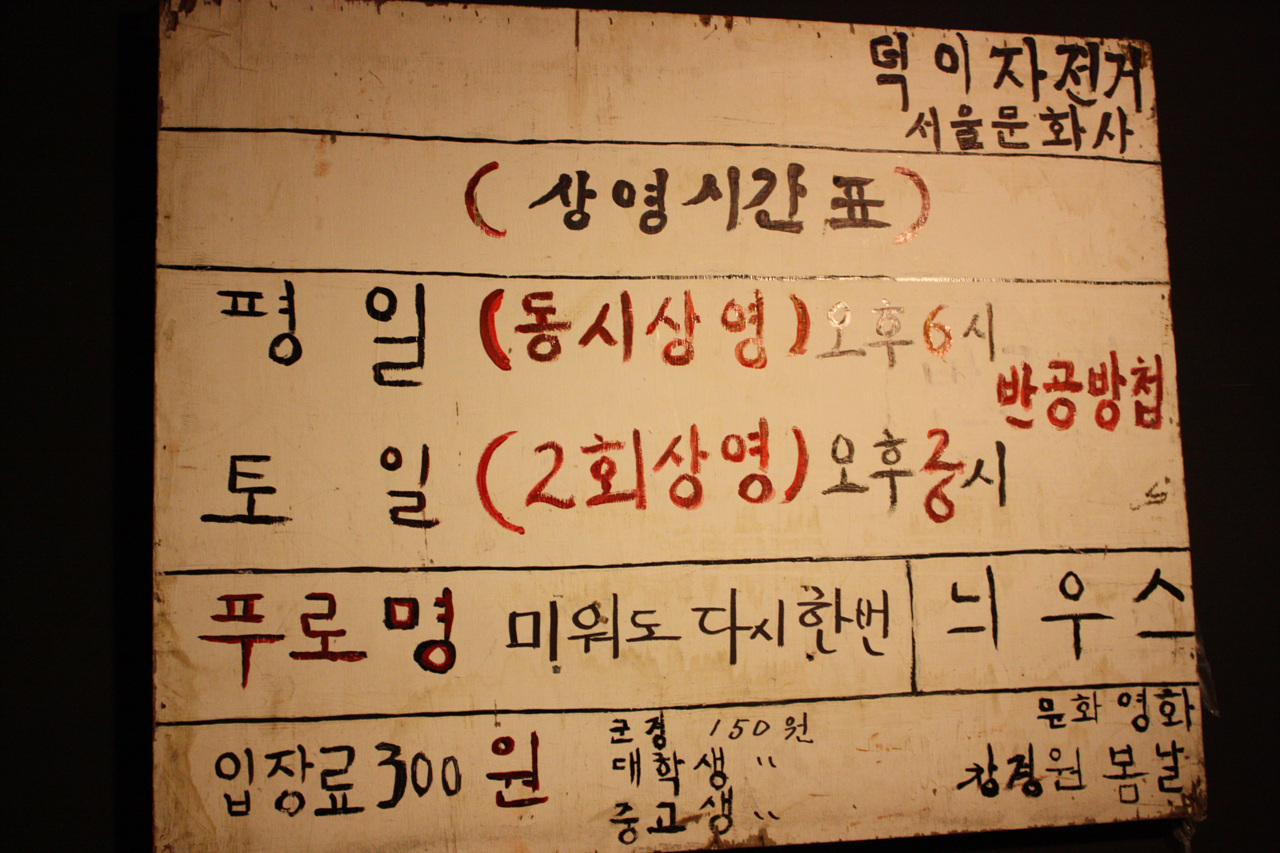 덕이자전거
서울문화사
(상영시간표)
평일 (동시상영) 오후6시
반공방첩
토일 (2회상영) 오후 시
푸로명 미워도 다시한번 늬우스
입장료 300원
군경 150원
대학생 〃
중고생 〃
문화영화
창경원 봄날